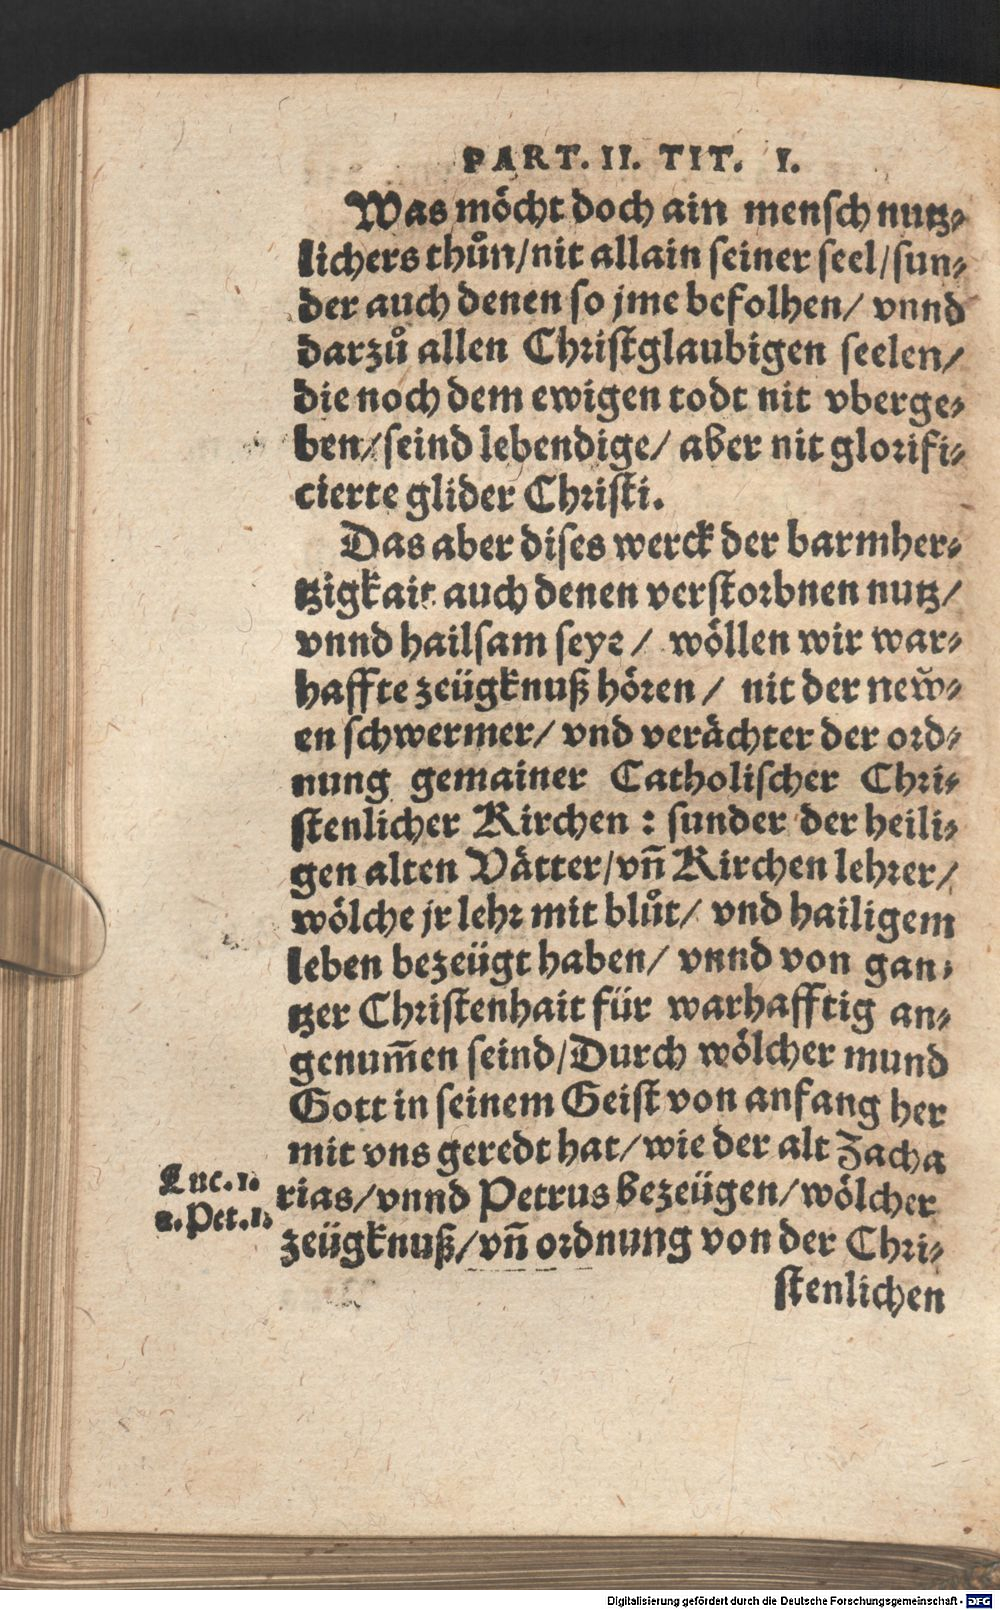 PART. II. TIT. I.
Was möcht doch ain mensch nutz⸗
lichers thůn/nit allain seiner seel/sun⸗
der auch denen so jme befolhen/ vnnd
darzů allen Christglaubigen seelen/
die noch dem ewigen todt nit vberge⸗
ben/seind lebendige/ aber nit glorifi⸗
cierte glider Christi.
Das aber dises werck der barmher⸗
tzigkait auch denen verstorbnen nutz/
vnnd hailsam seye/ wöllen wir war⸗
haffte zeügknuß hören/ nit der new⸗
en schwermer/ vnd verächter der ord⸗
nung gemainer Catholischer Chri⸗
stenlicher Kirchen : sunder der heili⸗
gen alten Vätter/vñ Kirchen lehrer/
wölche jr lehr mit blůt/ vnd hailigem
leben bezeügt haben/ vnnd von gan⸗
tzer Christenhait für warhafftig an⸗
genum̃en seind/Durch wölcher mund
Gott in seinem Geist von anfang her
mit vns geredt hat/wie der alt Zacha
Luc.1.
rias/vnnd Petrus bezeügen/wölcher
2.Pet.1.
zeügknuß/vñ ordnung von der Chri⸗
stenlichen
Digitalisierung gefördert durch die Deutsche Forschungsgemeinschaft - DFG